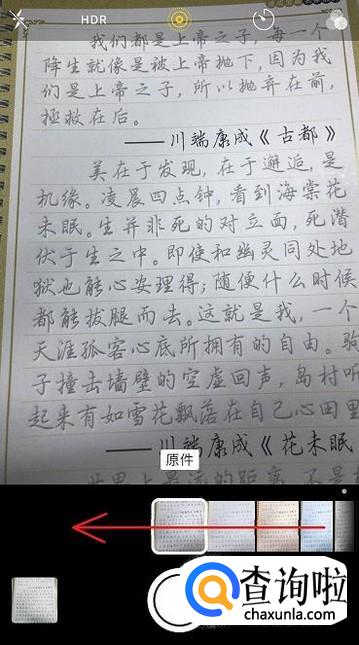 HDR
我们都是上帝之子，每一个
降生就像是被上帝抛下，因为我
们是上帝之子，所以抛弃在前，
拯救在后。
——川端康成《古都》
美在于发现，在于邂逅，是
机缘。凌晨四点钟，看到海棠花
未眠。生并非死的对立面，死潜
伏于生之中。即使和幽灵同处地
狱也能心安理得；随便什么时候
都能拔腿而去。这就是我，一个
天涯孤客心底所拥有的自由。驹
子撞击墙壁的空虚回声，岛村听
起来有如雪花飘落在自己心田里
——川端康成《花未眠
世界上最远的距离，不是
原件
查询啦
chaxunla.com